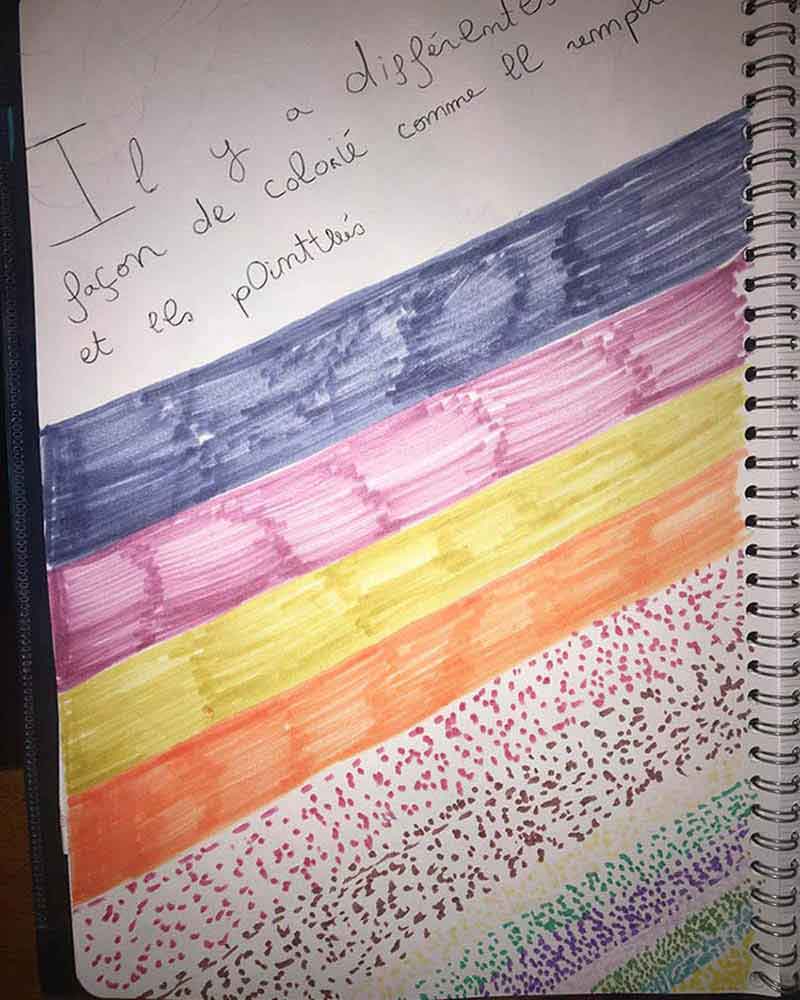 Il y a différentes
façon de colorié comme le rempli
et les pointtiés